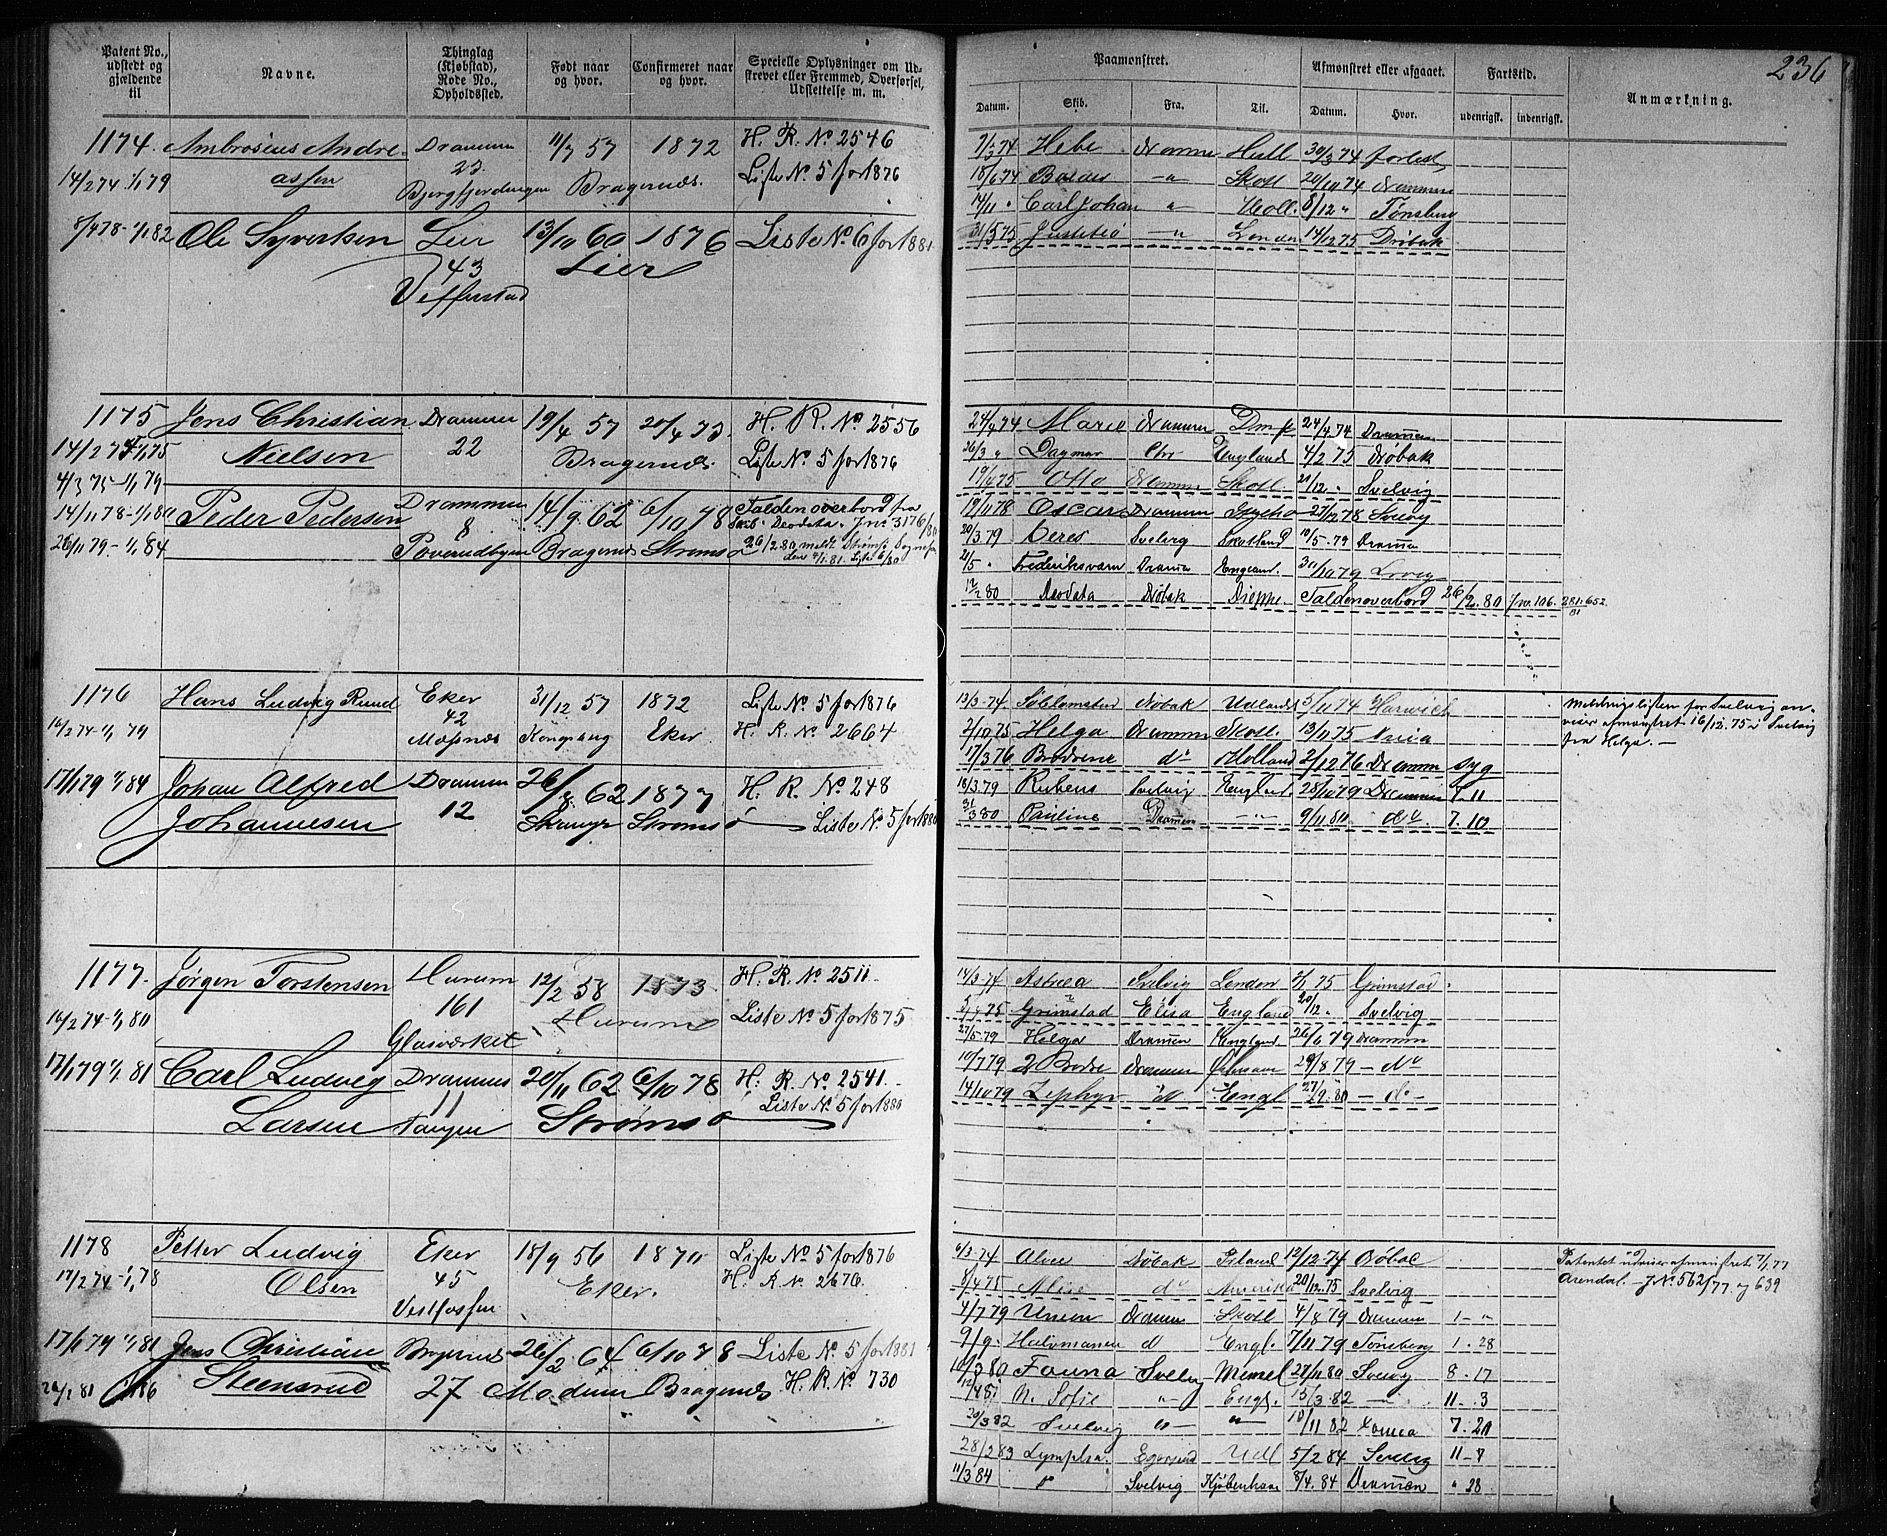 236
Patent No., udstedt og gjældende til
Navne.
Thinglag (Kjøbstad), Rode No., Opholdssted.
Født naar og hvor.
Confirmeret naar og hvor.
Specielle Oplysninger om Udskrevet eller Fremmed, Overførsel, Udslettelse m. m.
Paamønstret.
Afmønstret eller afgaaet.
Fartstid.
Anmærkning.
Datum.
Skib.
Fra.
Til.
Datum.
Hvor.
udenrigsk.
indenrigsk.
1174. Ambrosius Andre- Drammen 11/7 57 1872 H. R. No 2546
14/2 74 1/1 79 assen 23. Bragernæs. Liste No. 5 for 1876
8/4 78 - 1/1 82 Ole Syvertsen Lier 13/10 60 1876 Liste No. 6 for 1881
43 Lier
7/3 74 Hebe Dramme Hull 30/3 74 forlist
18/6 74 Skotl 20/10 74 Drammen
14/11 " Carl Johan " 8/12 " Tønsberg
31/5 75 London 14/12 75 Drøbak
1175 Jens Christian Drammen 19/4 57 20/4 73 H. R. No 2556
14/2 74 1/1 75 Nielsen 22 Bragernæs. Liste No. 5 for 1876
4/3 75 - 1/1 79
14/11 78 - 1/1 80 Peder Pedersen Drammen 14/9 62 6/10 78 Falden overbord fra
8 Skib. Deodata. J no. 3176/80
26/11 79 - 1/1 84 Bragernæs Strømsø 26/2 80 meldt Strømsø
24/4 74 Marie Drammen 24/9 74 Drammen
26/3 " Dagmar Chr England 4/2 75 Drøbak
19/4 75 Otto Dramme Skotl 21/12 " Svelvig
19/11 78 Oscar Drammen 27/12 78 Svelvig
20/3 79 Ceres Svelvig Skotland 10/5 79 Drammen
21/5 " Frederiksværn Dramen England.
12/2 80 Deodata Drøbak Dieppe. Falden overbord 26/2. 80 J no. 106. 281. 652/81
1176 Hans Ludvig Ruud Eker 31/12 57 1872 Liste No. 5 for 1876
42
16/2 74 1/1 79 Kongsberg Eker H. R. No 2664
17/1 79 1/1 84 Johan Alfred Drammen 26/8 62 1877 H. R. No 248
Johannesen 12 Strømsø Liste No. 5 for 1880
12/3 74 Drøbak Udlandet 5/11 74 Harwich
2/10 75 Helga Dramme Skotl. 13/11 75
17/3 76 Brødrene do Holland 2/12 76 Dramm syg
18/3 79 Rubens Svelvig Engld. 28/10 79 Drammen 7. 11
31/3 80 Pauline Dramen - " - 9/11 80 do 7. 10
Meldingslisten for Svelvig
afmønstret 16/12. 75 i Svelvig
fra Helga. —
1177. Jørgen Torstensen Hurum 12/2 58 1873. H. R. No 2511.
161
16/2 74 - 1/1 80 Glasværket Hurum Liste No. 5 for 1875
17/1 79 1/1 81 Carl Ludvig Drammen 20/11 62 6/10 78 H. R. No. 2541.
11 Liste No. 5 for 1880
Larsen Tangen Strømsø
14/3 74 Astræa Svelvig London 2/1 75 Grimstad.
Grimstad Elisa England 20/12 " Svelvig
27/5 79 Helga Dramen England 26/6 79 Dramm
10/7 79 2 Brødre Drammen 29/8 79 — do
14/10 79 Zephyr Engl 27/9. 80 — do —
1178 Petter Ludvig Eker 18/9 56 1870 Liste No. 5 for 1876
17/2 74 - 1/1 78 Olsen 45 Eker. H. R. No. 2676.
Vestfossen
17/1 79 1/1 81 Jens Christian Bragernæs 26/2 64 6/10 78 Liste No. 5 for 1881
24/1 81 1/1 86 Steensrud 27 Modum Bragernæs H. R. No. 730
6/3 74 Drøbak Island 12/12 74 Drøbak
8/4 75 do Amerika 20/12 75 Svelvig
4/7 79 Union Dramen Skotl 4/8 79 Drammen 1 - "
9/9 " d Engl. 7/11 79 Tønsberg 1 . 28
10/3 80 Fauna Svelvig Memel 27/11 80 Svelvig 8 . 17
N. Sofie " Engl. 15/3 82 " 11 . 3
20/3 82 Svelvig " " 10/11 82 7 . 20
28/2 83 Egersund Udl 5/2 84 Svelvig 11 - 8
11/3 84 Svelvig Kjøbenhavn 8/4. 84 Dramen " 28
Patentet udviser afmønstret 7/1 77
Arendal. — J No 562/77 og 639